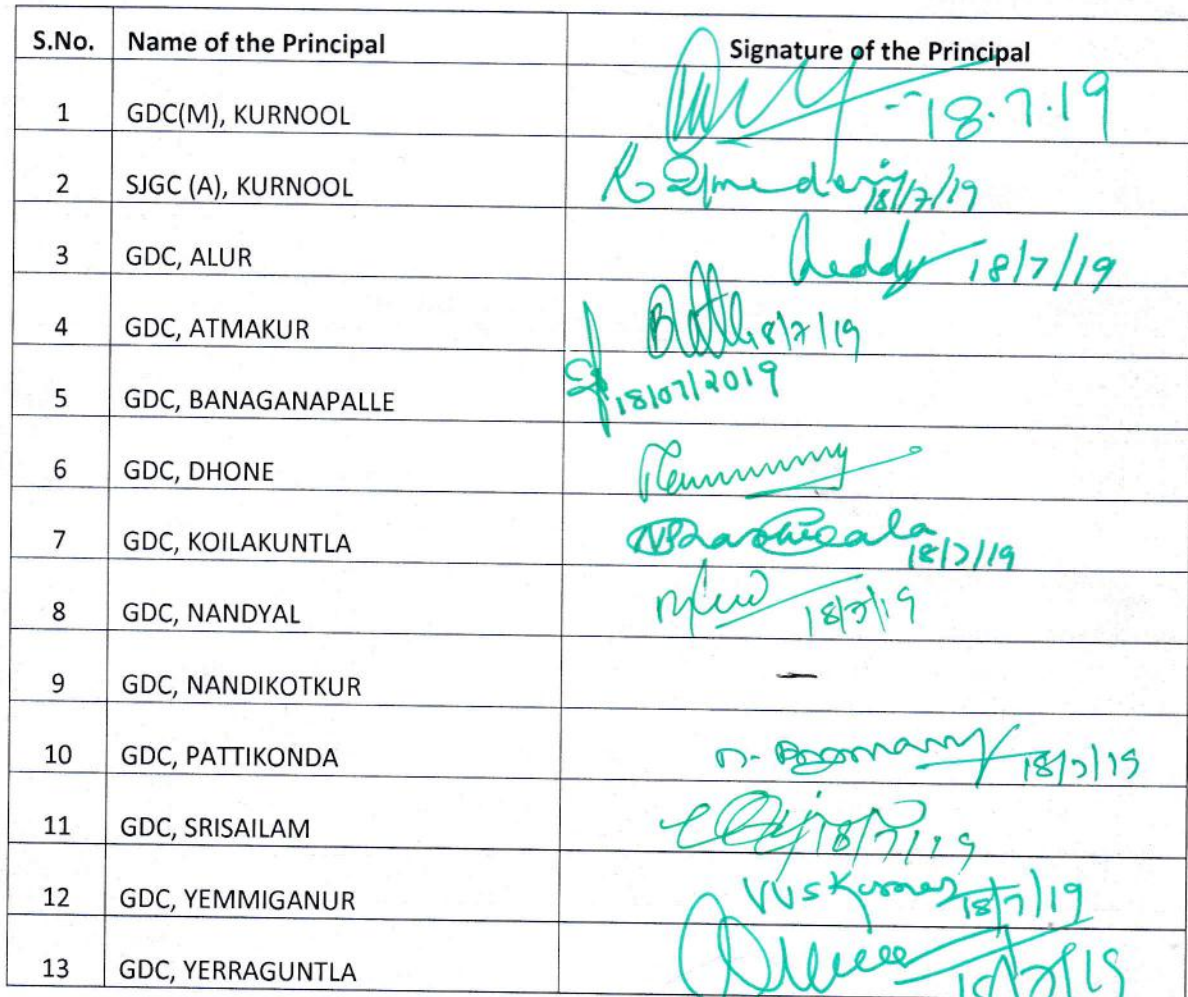 S.No. Name of the Principal Signature of the Principal
1 GDC(M), KURNOOL -18.7.19
2 SJGC (A), KURNOOL 18/7/19
3 GDC, ALUR Reddy 18/7/19
4 GDC, ATMAKUR 18/7/19
5 GDC, BANAGANAPALLE 18/07/2019
6 GDC, DHONE
7 GDC, KOILAKUNTLA 18/7/19
8 GDC, NANDYAL 18/7/19
9 GDC, NANDIKOTKUR —
10 GDC, PATTIKONDA 18/7/19
11 GDC, SRISAILAM 18/7/19
12 GDC, YEMMIGANUR VVS Kumar 18/7/19
13 GDC, YERRAGUNTLA 18/7/19